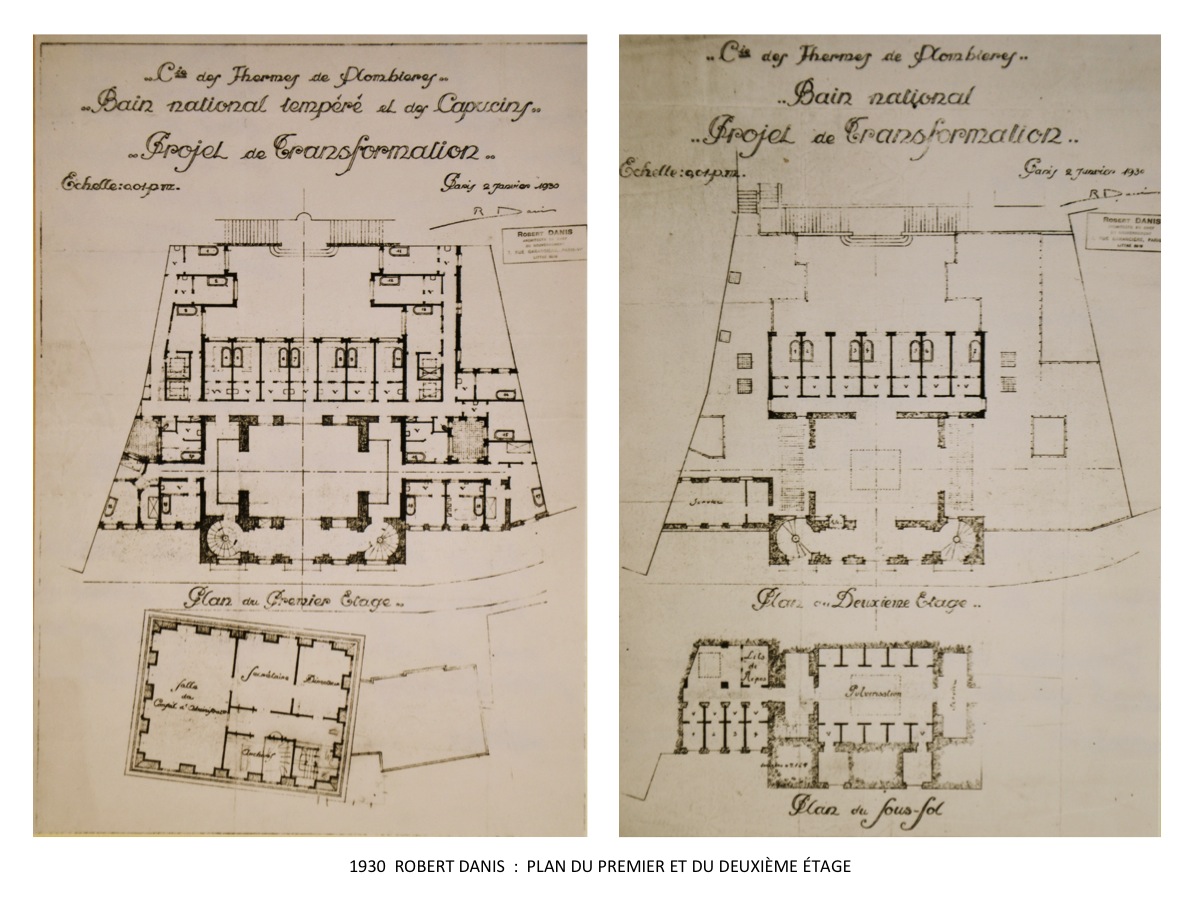 „Cie des Thermes de Plombieres„
„Bain national tempéré et des Capucins„
„Projet de Transformation„
Echelle: 0,01 p.m.
Paris 2 Janvier 1930
R Danis
ROBERT DANIS
Plan du Premier Etage„
Salle
du
Secrétaire
Directeur
Archives
„Cie des Thermes de Plombieres„
„Bain national
„Projet de Transformation„
Echelle: 0,01 p.m.
Paris 2 Janvier 1930
R Danis
ROBERT DANIS
Plan du Deuxieme Etage„
Lits
de
Repos
Pulverisation
Plan du Sous-Sol
1930 ROBERT DANIS : PLAN DU PREMIER ET DU DEUXIÈME ÉTAGE